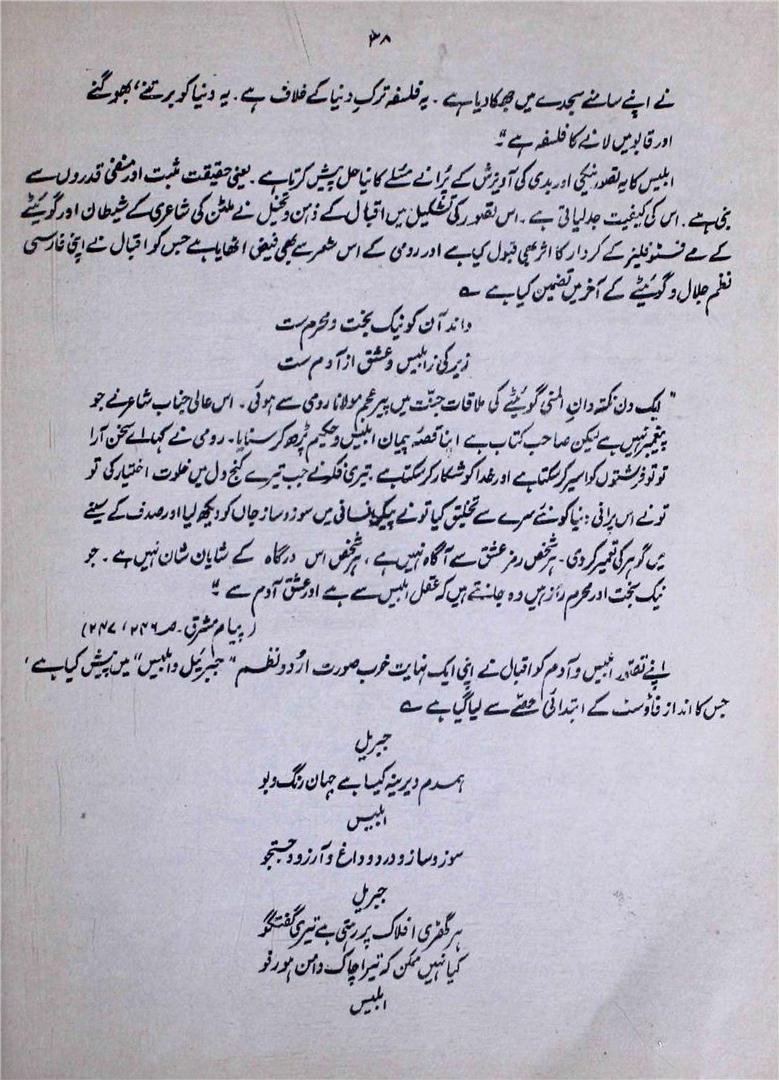 ۳۸
نے اپنے سامنے سجدے میں جھکا دیا ہے ۔ یہ فلسفہ ترکِ دنیا کے خلاف ہے ۔ یہ دنیا کو برتنے، بھوگنے
اور قابو میں لانے کا فلسفہ ہے "۔
ابلیس کا یہ تصور نیکی اور بدی کی آویزش کے پُرانے مسئلے کا نیا حل پیش کرتا ہے ۔ یعنی حقیقت مثبت اور منفی قدروں سے
بنی ہے ۔ اس کی کیفیت جدلیاتی ہے ۔ اس تصور کی تشکیل میں اقبال کے ذہن و تخیل نے ملٹن کی شاعری کے شیطان اور گوئٹے
کے مے فسٹوفلیز کے کردار کا اثر بھی قبول کیا ہے اور رومی کے اس شعر سے بھی فیض اٹھایا ہے جس کو اقبال نے اپنی فارسی
نظم جلال و گوئٹے کے آخر میں تضمین کیا ہے ؎
داند آن کو نیک بخت و محرم ست
زیرکی ز ابلیس و عشق از آدم ست
" ایک دن نکتہ دانِ المنی گوئٹے کی ملاقات جنّت میں پیرِ عجم مولانا رومی سے ہوئی ۔ اس عالی جناب شاعر نے جو
پیغمبر نہیں ہے لیکن صاحب کتاب ہے اپنا قصہ پیمان ابلیس و حکیم پڑھ کر سنایا ۔ رومی نے کہا اے سخن آرا
تو تو فرشتوں کو اسیر کر سکتا ہے اور خدا کو شکار کر سکتا ہے ۔ تیری فکر نے جب تیرے کنج دل میں خلوت اختیار کی تو
تو نے اس پرانی دنیا کو نئے سرے سے تخلیق کیا تو نے پیکرِ انسانی میں سوز و ساز جاں کو دیکھ لیا اور صدف کے سینے
میں گوہر کی تعمیر کر دی ۔ ہر شخص رمزِ عشق سے آگاہ نہیں ہے ، ہر شخص اس درگاہ کے شایان شان نہیں ہے ۔ جو
نیک بخت اور محرم راز ہیں وہ جانتے ہیں کہ عقل ابلیس سے ہے اور عشق آدم سے "۔
( پیام مشرق ۔ ص ۲۴۶ ، ۲۴۷ )
اپنے تصور ابلیس و آدم کو اقبال نے اپنی ایک نہایت خوب صورت اردو نظم " جبرئیل و ابلیس " میں پیش کیا ہے ،
جس کا انداز فاؤسٹ کے ابتدائی حصّے سے لیا گیا ہے ؎
جبریل
ہمدم دیرینہ کیسا ہے جہان رنگ و بو
ابلیس
سوز و ساز و درد و داغ و آرزو و جستجو
جبریل
ہر گھڑی افلاک پر رہتی ہے تیری گفتگو
کیا نہیں ممکن کہ تیرا چاک دامن ہو رفو
ابلیس